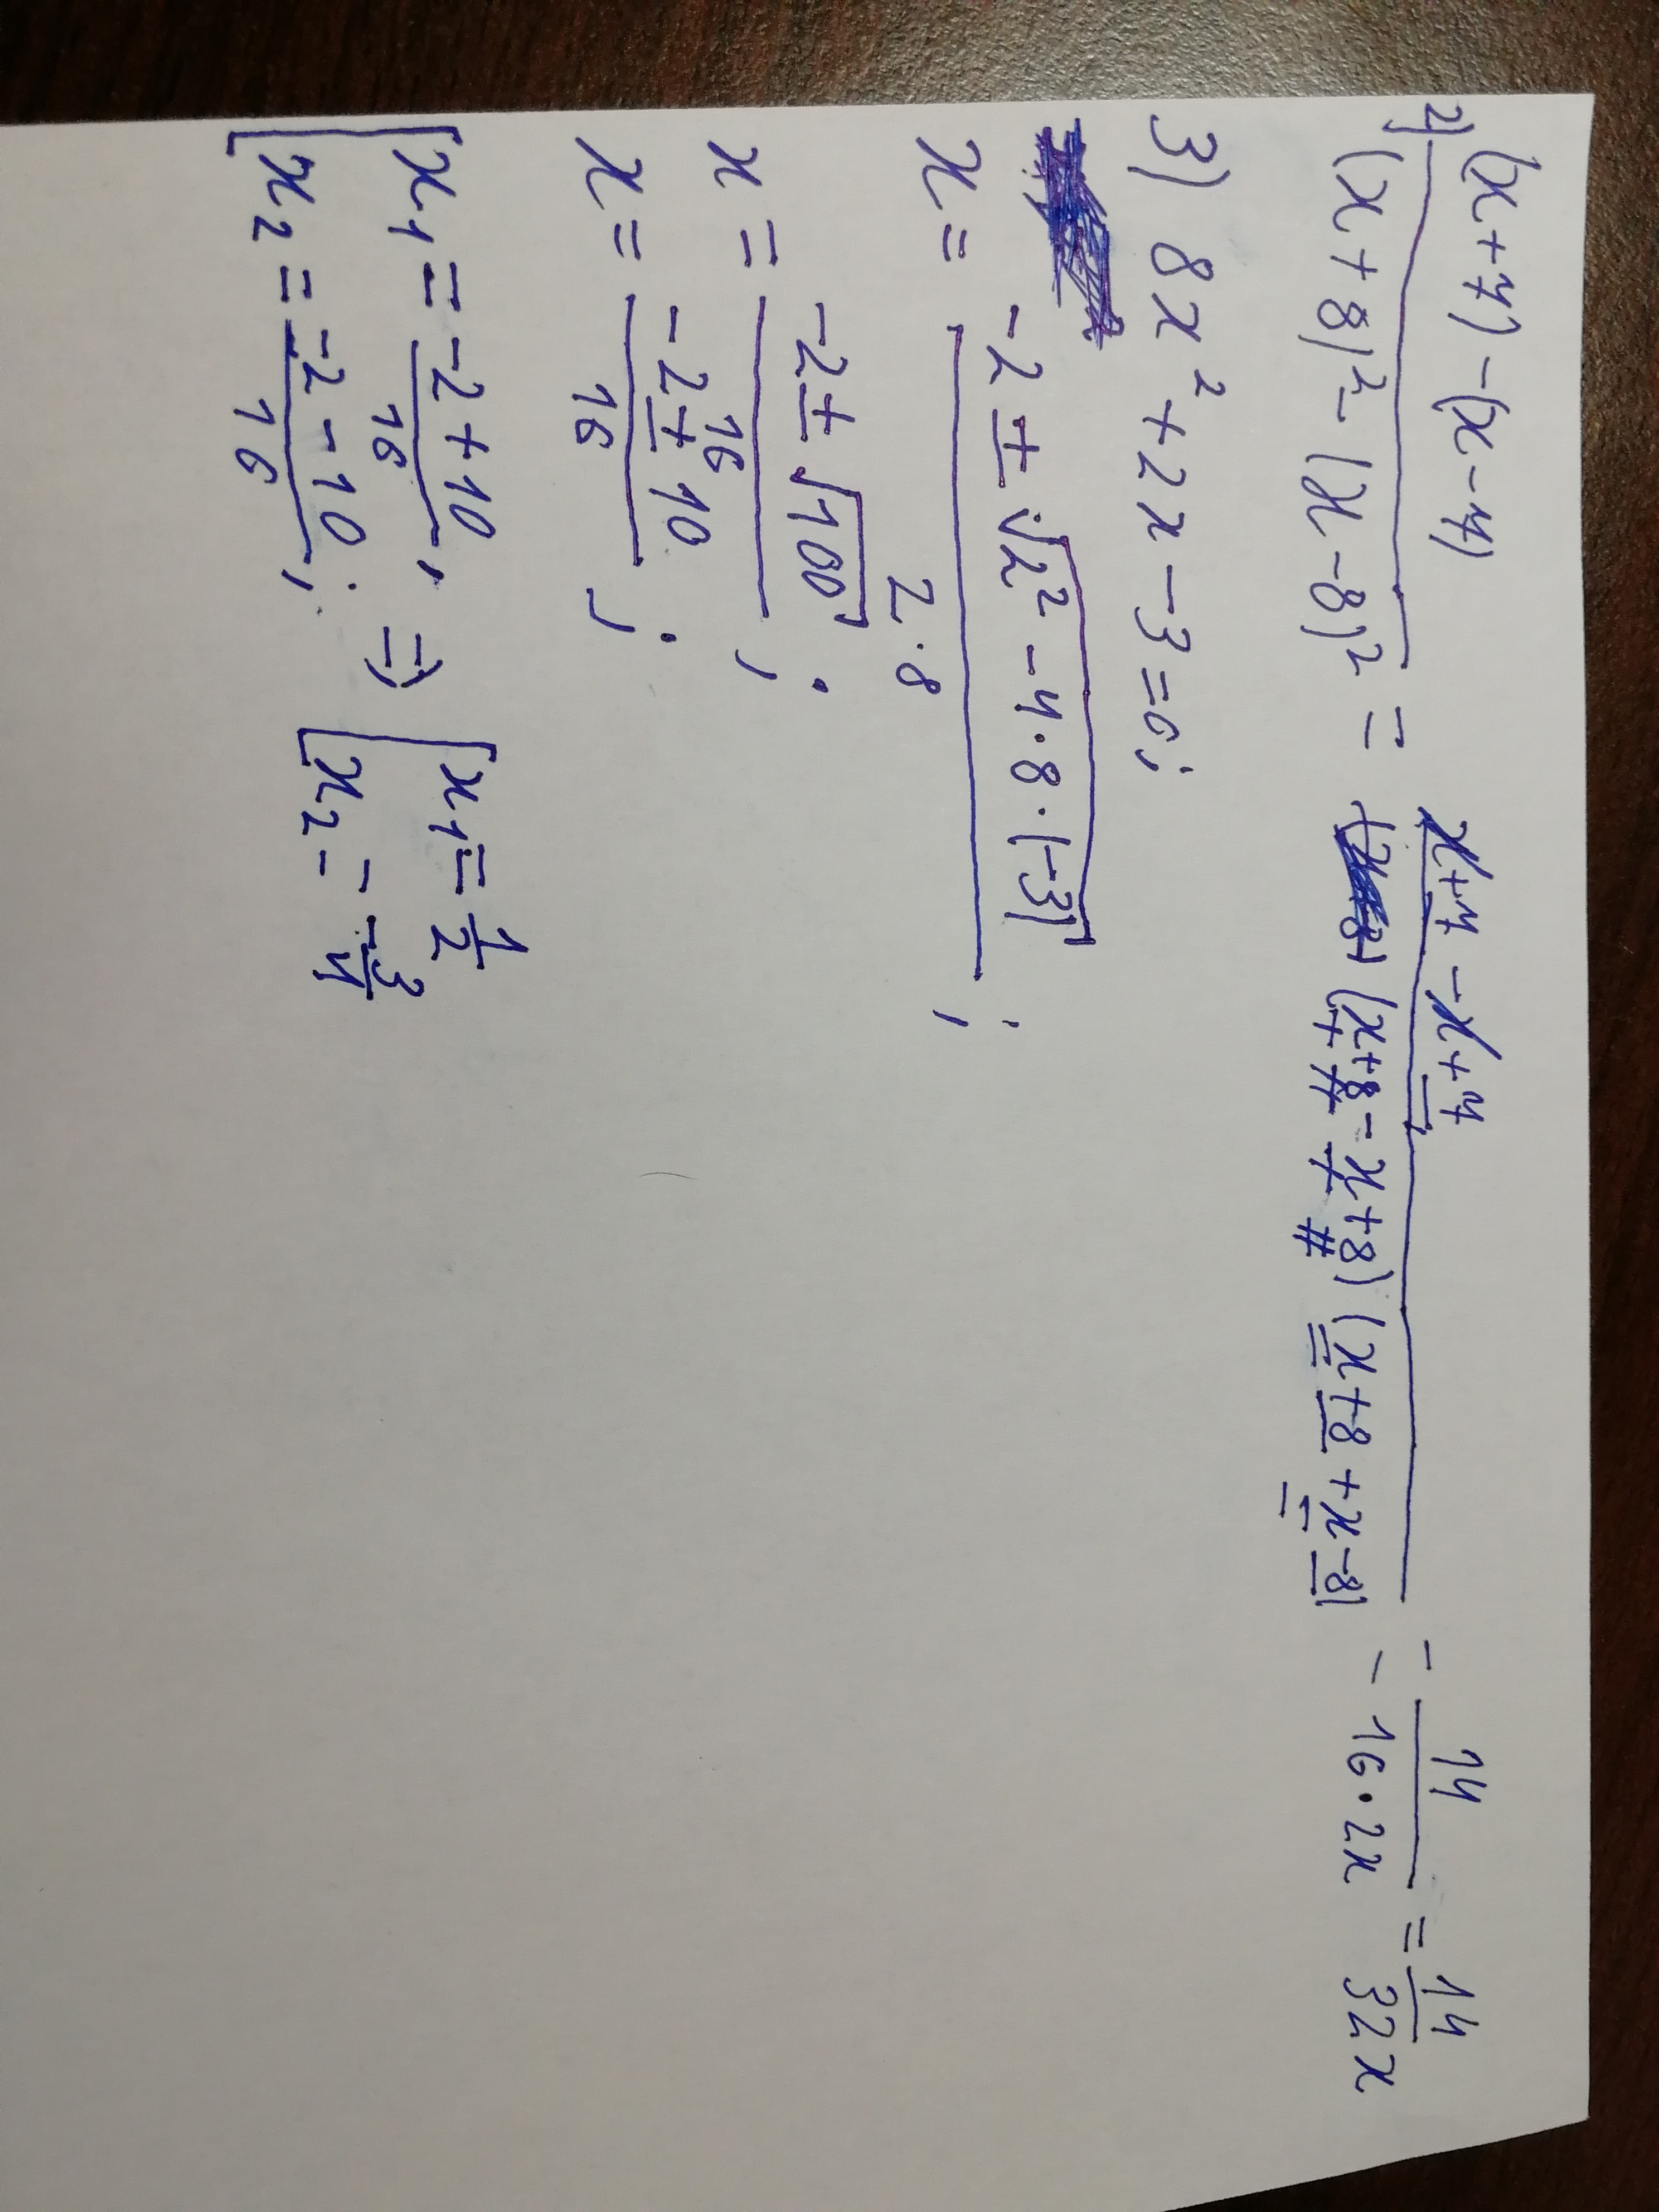 2) (x+7)-(x-7) / (x+8)²-(x-8)² = x+7-x+7 / (x+8-x+8)(x+8+x-8) = 14 / 16·2x = 14 / 32x
3) 8x²+2x-3=0;
x = -2±√(2²-4·8·(-3)) / 2·8 ;
x = -2±√100 / 16 ;
x = -2±10 / 16 ;
[ x₁ = -2+10 / 16 , x₂ = -2-10 / 16 ; ⇒ [ x₁ = 1/2 x₂ = -3/4